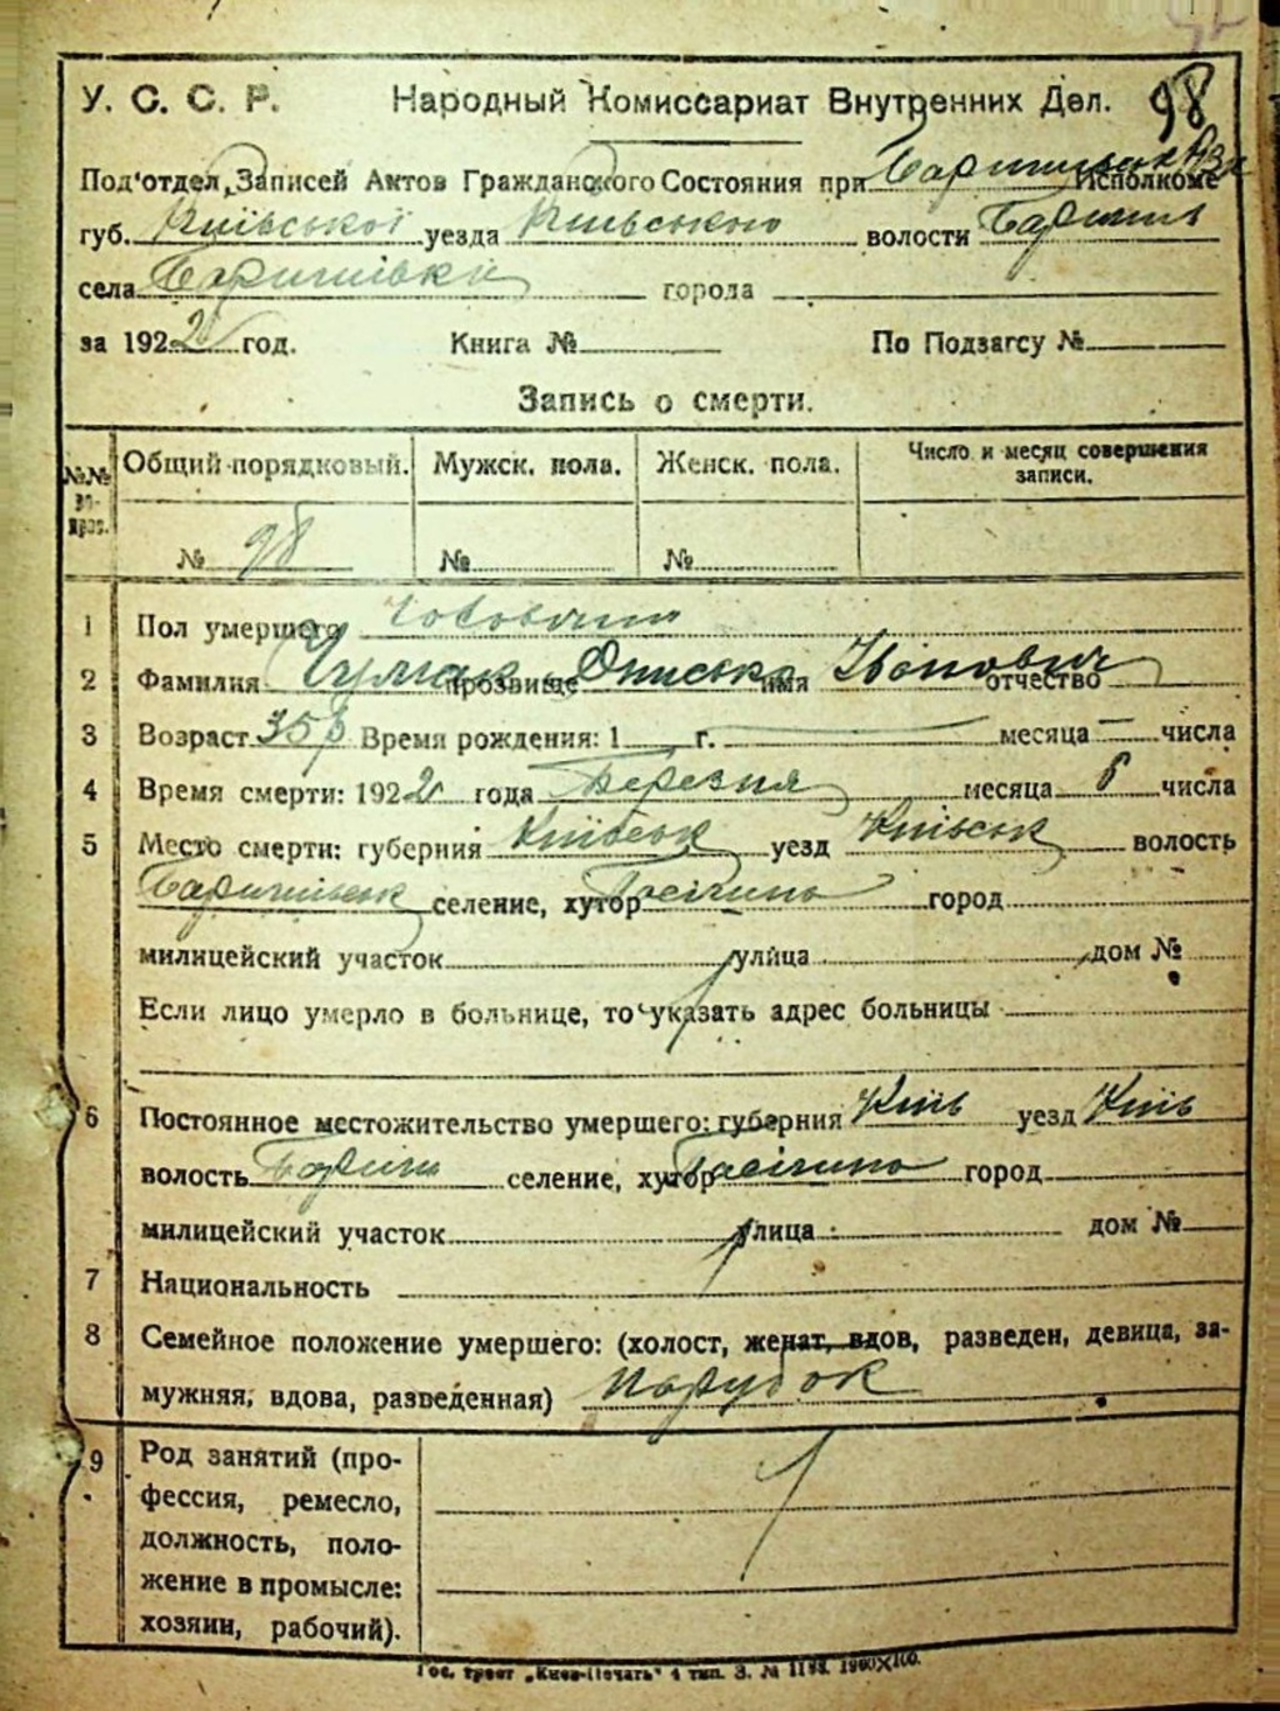 98
У. С. С. Р. Народный Комиссариат Внутренних Дел.
Под'отдел Записей Актов Гражданского Состояния при Исполкоме
губ. Київської уезда Київського волости Баришів
села Баришівки города
за 1922 год. Книга № По Подзагсу №
Запись о смерти.
№№ во-прос. Общий порядковый. Мужск. пола. Женск. пола. Число и месяц совершения записи.
№ 98 № №
1 Пол умершего
2 Фамилия Чумак прозвище Ониська имя Івонович отчество
3 Возраст 35 р Время рождения: 1 г. — месяца — числа
4 Время смерти: 1922 года Березня месяца 6 числа
5 Место смерти: губерния Київськ уезд Київськ волость
Баришівськ селение, хутор Пасічино город
милицейский участок улица дом №
Если лицо умерло в больнице, то указать адрес больницы
6 Постоянное местожительство умершего: губерния Київ уезд Київ
волость Бариш селение, хутор Пасічино город
милицейский участок улица дом №
7 Национальность
8 Семейное положение умершего: (холост, женат, вдов, разведен, девица, за-
мужняя, вдова, разведенная) Порубок
9 Род занятий (про-
фессия, ремесло,
должность, поло-
жение в промысле:
хозяин, рабочий).
Гос. трест „Киев-Печать" 4 тип. З. № 1198. 1900×100.